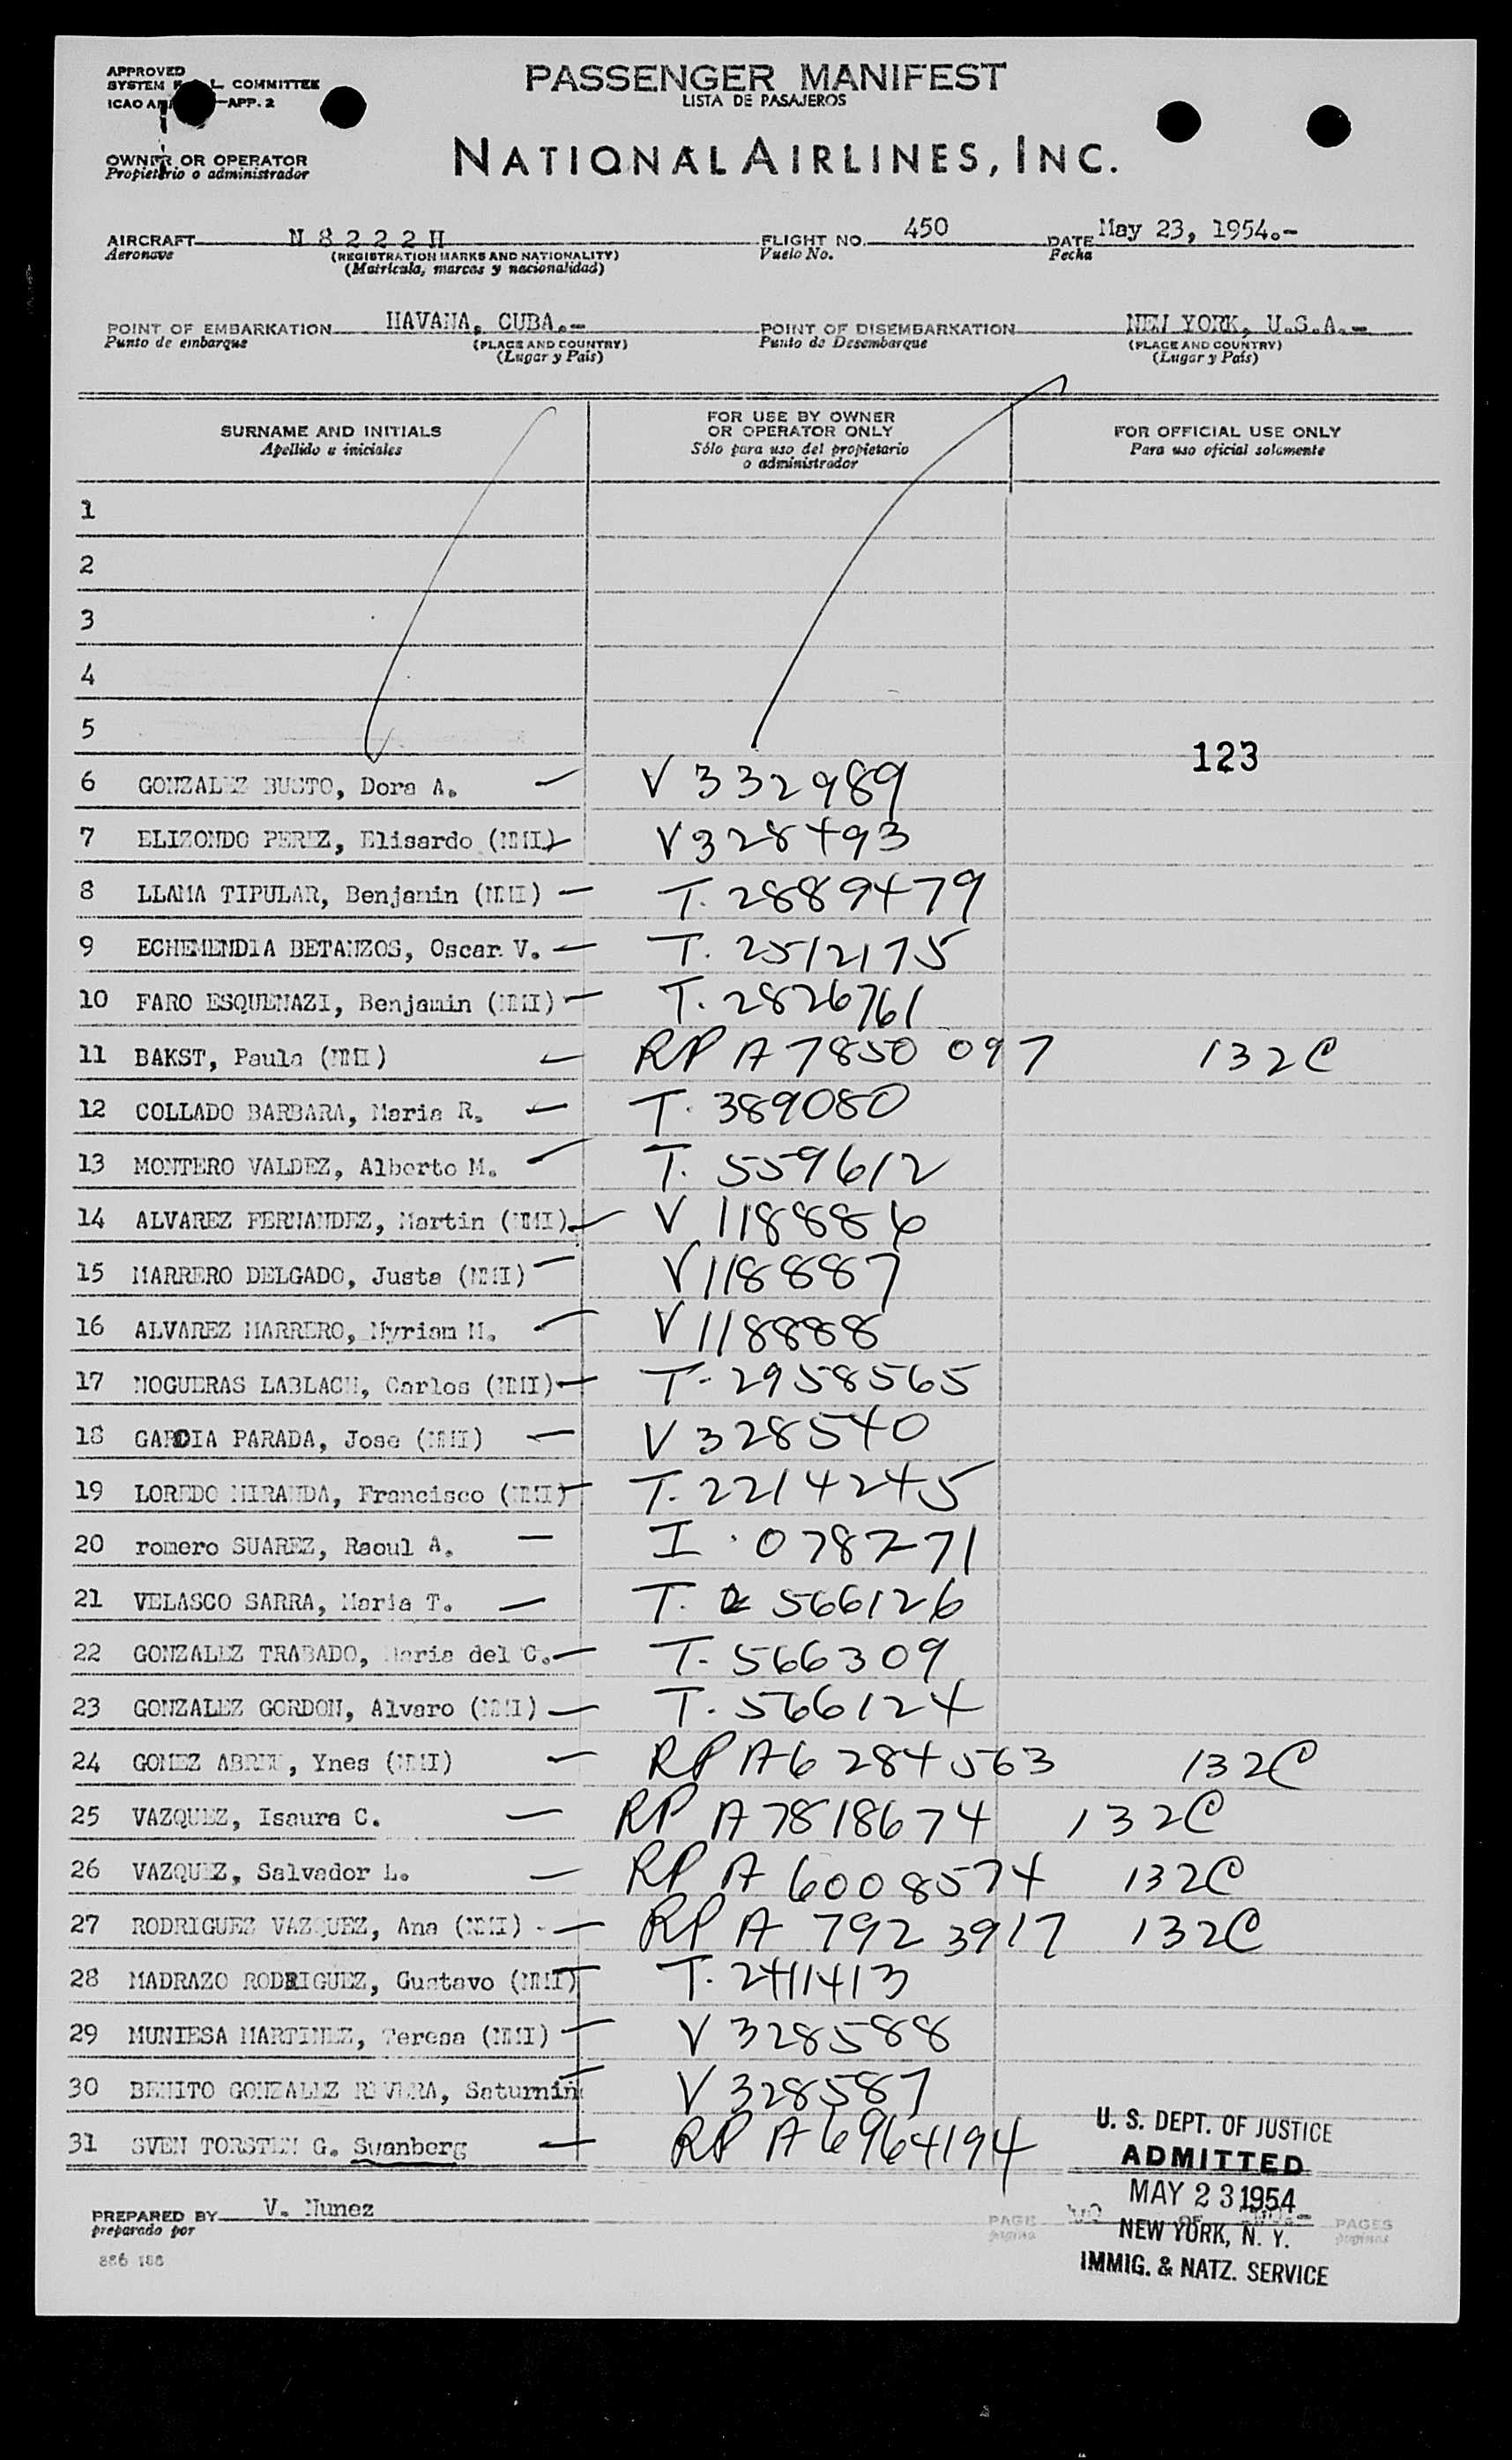 APPROVED
SYSTEM COMMITTEE
ICAO -APP. 2
PASSENGER MANIFEST
LISTA DE PASAJEROS
OWNER OR OPERATOR
Propietario o administrador
NATIONAL AIRLINES, INC.
AIRCRAFT N 8 2 2 2 H FLIGHT NO. 450 DATE May 23, 1954.-
Aeronave (REGISTRATION MARKS AND NATIONALITY) Vuelo No. Fecha
(Matricula, marcas y nacionalidad)
POINT OF EMBARKATION HAVANA, CUBA.- POINT OF DISEMBARKATION NEW YORK, U.S.A.-
Punto de embarque (PLACE AND COUNTRY) Punto de Desembarque (PLACE AND COUNTRY)
(Lugar y País) (Lugar y País)
SURNAME AND INITIALS
Apellido e iniciales
FOR USE BY OWNER
OR OPERATOR ONLY
Sólo para uso del propietario
o administrador
FOR OFFICIAL USE ONLY
Para uso oficial solamente
1
2
3
4
5
123
6 GONZALEZ BUSTO, Dora A. — V 332989
7 ELIZONDO PEREZ, Elisardo (NMI) — V328493
8 LLAMA TIPULAR, Benjamin (NMI) — T. 2889479
9 ECHEMENDIA BETANZOS, Oscar V. — T. 2512175
10 FARO ESQUENAZI, Benjamin (NMI) — T. 2826761
11 BAKST, Paula (NMI) — RP A7850 097 132C
12 COLLADO BARBARA, Maria R. — T. 389080
13 MONTERO VALDEZ, Alberto M. — T. 559612
14 ALVAREZ FERNANDEZ, Martin (NMI) — V 118886
15 MARRERO DELGADO, Justa (NMI) — V118887
16 ALVAREZ MARRERO, Myriam M. — V118888
17 NOGUERAS LABLACH, Carlos (NMI) — T- 2958565
18 GARCIA PARADA, Jose (NMI) — V 328540
19 LOREDO MIRANDA, Francisco (NMI) — T. 2214245
20 romero SUAREZ, Raoul A. — I. 078271
21 VELASCO SARRA, Maria T. — T. 566126
22 GONZALEZ TRABADO, Maria del C. — T- 566309
23 GONZALEZ GORDON, Alvaro (NMI) — T. 566124
24 GOMEZ ABREU, Ynes (NMI) — RP A6 284563 132C
25 VAZQUEZ, Isaura C. — RP A7818674 132C
26 VAZQUEZ, Salvador L. — RP A 6008574 132C
27 RODRIGUEZ VAZQUEZ, Ana (NMI) — RP A 792 3917 132C
28 MADRAZO RODRIGUEZ, Gustavo (NMI) — T. 2411413
29 MUNIESA MARTINEZ, Teresa (NMI) — V 328588
30 BENITO GONZALEZ RIVERA, Saturnin — V 328587
31 SVEN TORSTEN G. Svanberg — RP A6964194
U. S. DEPT. OF JUSTICE
ADMITTED
MAY 23 1954
NEW YORK, N. Y.
IMMIG. & NATZ. SERVICE
PREPARED BY V. Nunez
preparado por
PAGE OF PAGES
página páginas